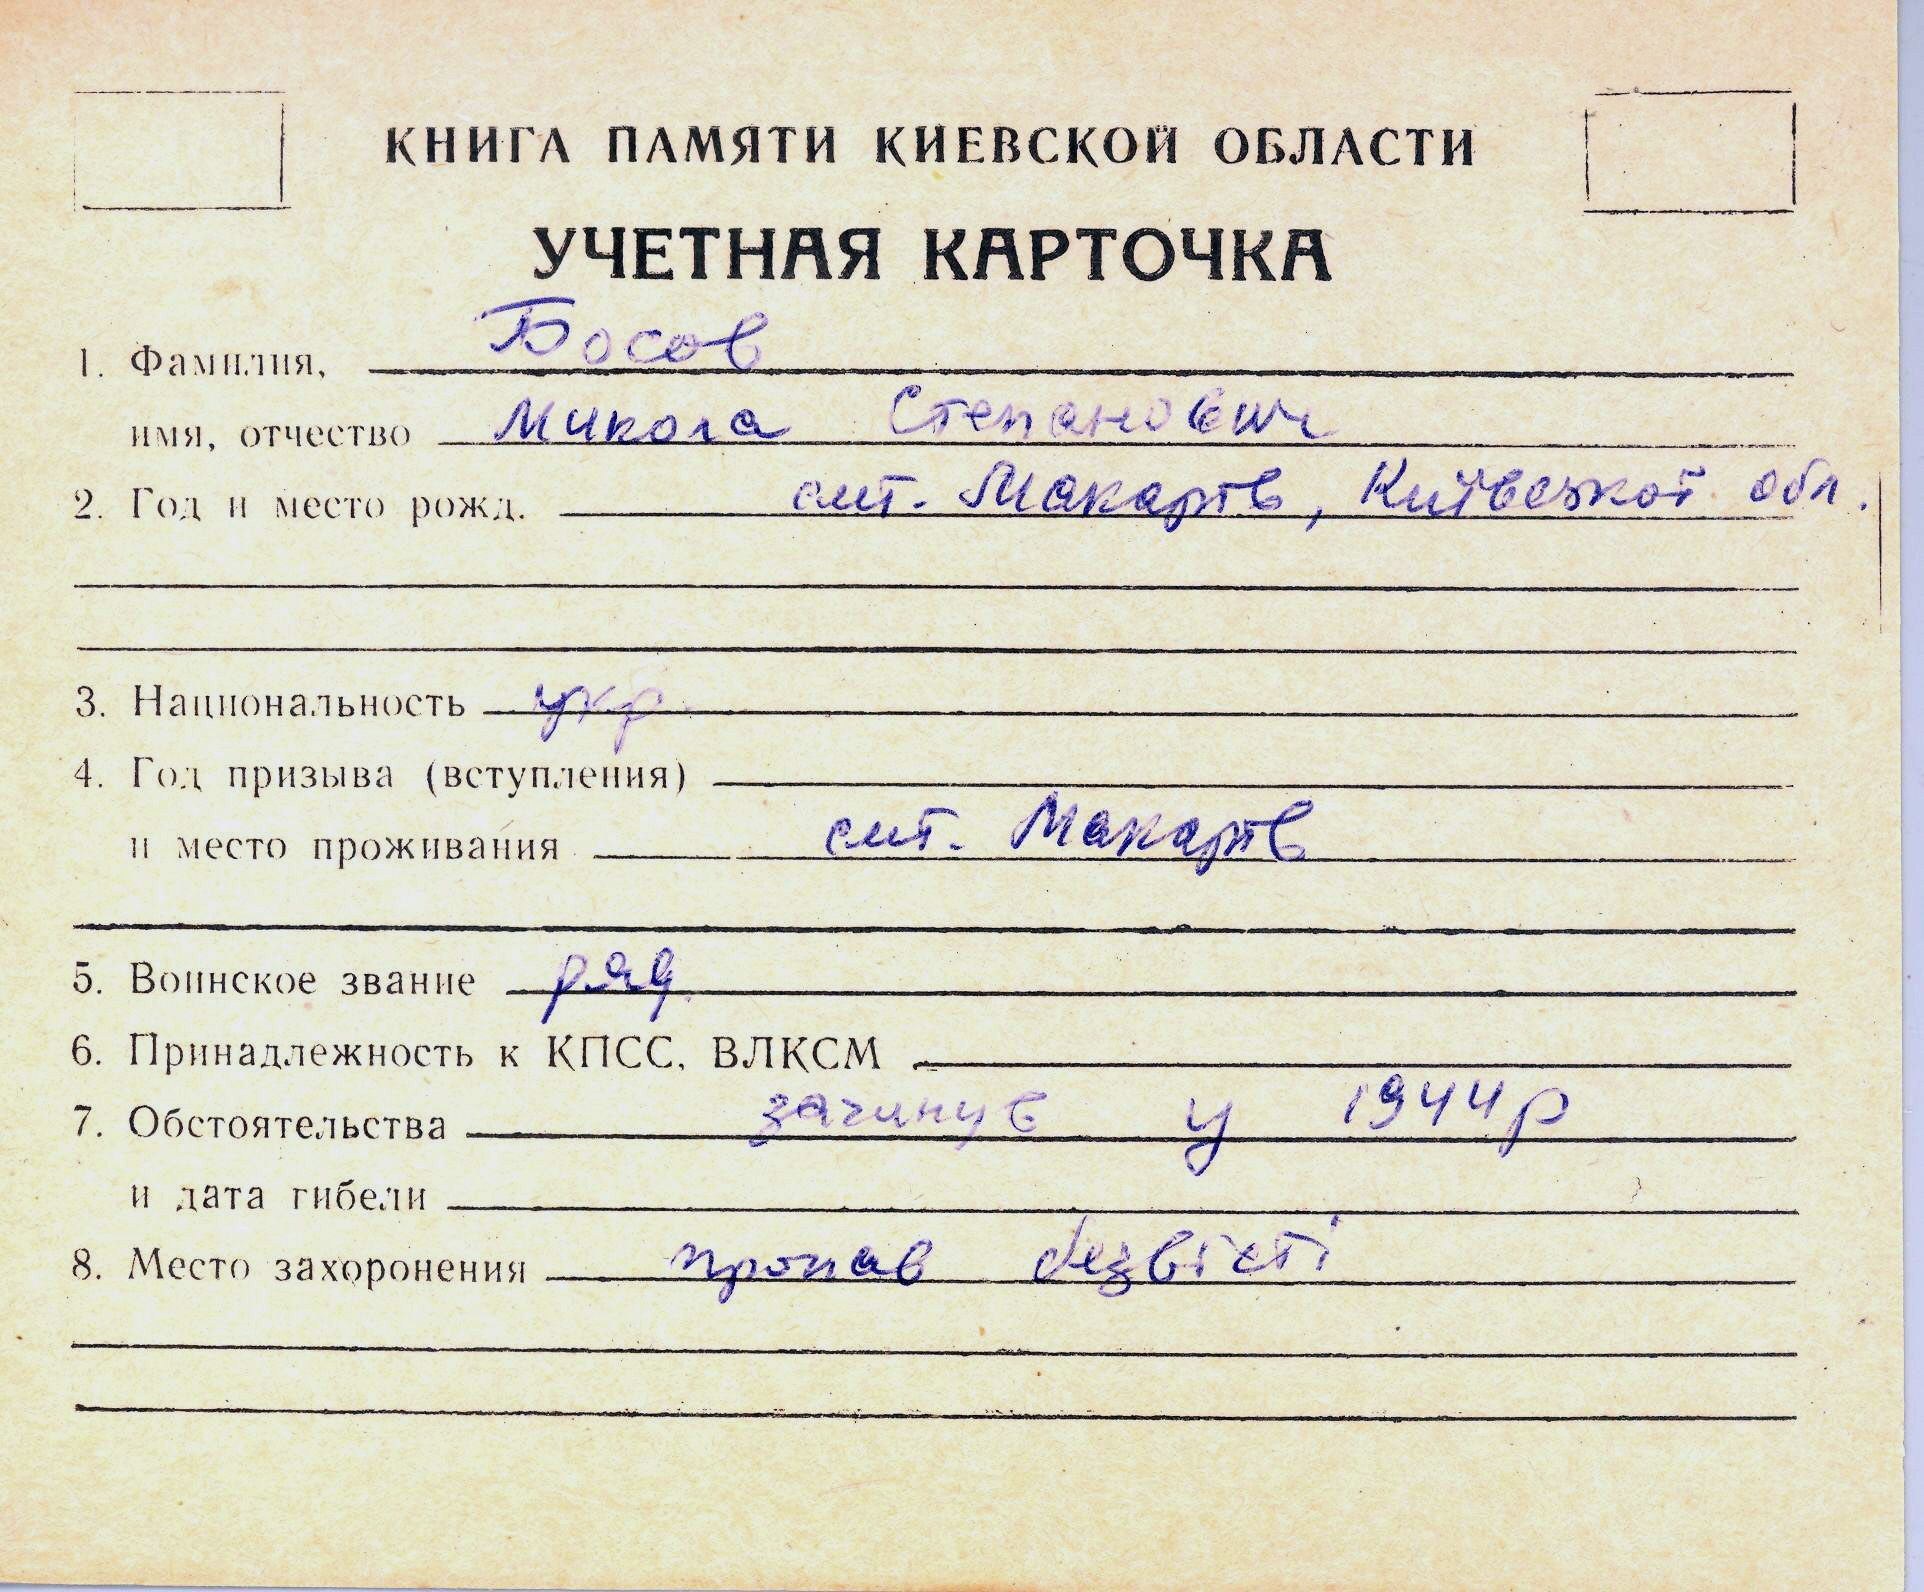 КНИГА ПАМЯТИ КИЕВСКОЙ ОБЛАСТИ
УЧЕТНАЯ КАРТОЧКА
1. Фамилия, Босов
имя, отчество Микола Степанович
2. Год и место рожд. смт. Макарів, Київської обл.
3. Национальность укр.
4. Год призыва (вступления)
и место проживания смт. Макарів
5. Воинское звание ряд.
6. Принадлежность к КПСС, ВЛКСМ
7. Обстоятельства загинув у 1944 р
и дата гибели
8. Место захоронения пропав безвісті